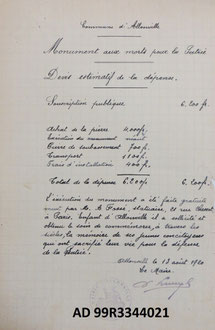 Commune d'Allouville
Monument aux morts pour la Patrie
Devis estimatif de la dépense.
Souscription publique 6.200 fr.
Achat de la pierre 4,000 fr.
Exécution du monument
Pierre de soubassement 700 fr.
Transport 1100 fr.
Frais d'installation 400 fr.
Total de la dépense 6.200 fr. 6.200 fr.
L'exécution du monument a été faite gratuite
ment par M. A. statuaire,
à Paris. Enfant d'Allouville il a sollicité et
obtenu le soin de commémorer, à travers les
siècles, la mémoire de ses jeunes concitoyens
qui ont sacrifié leur vie pour la défense
de la Patrie.
Allouville le 13 août 1920
Le Maire,
AD 99R3344021